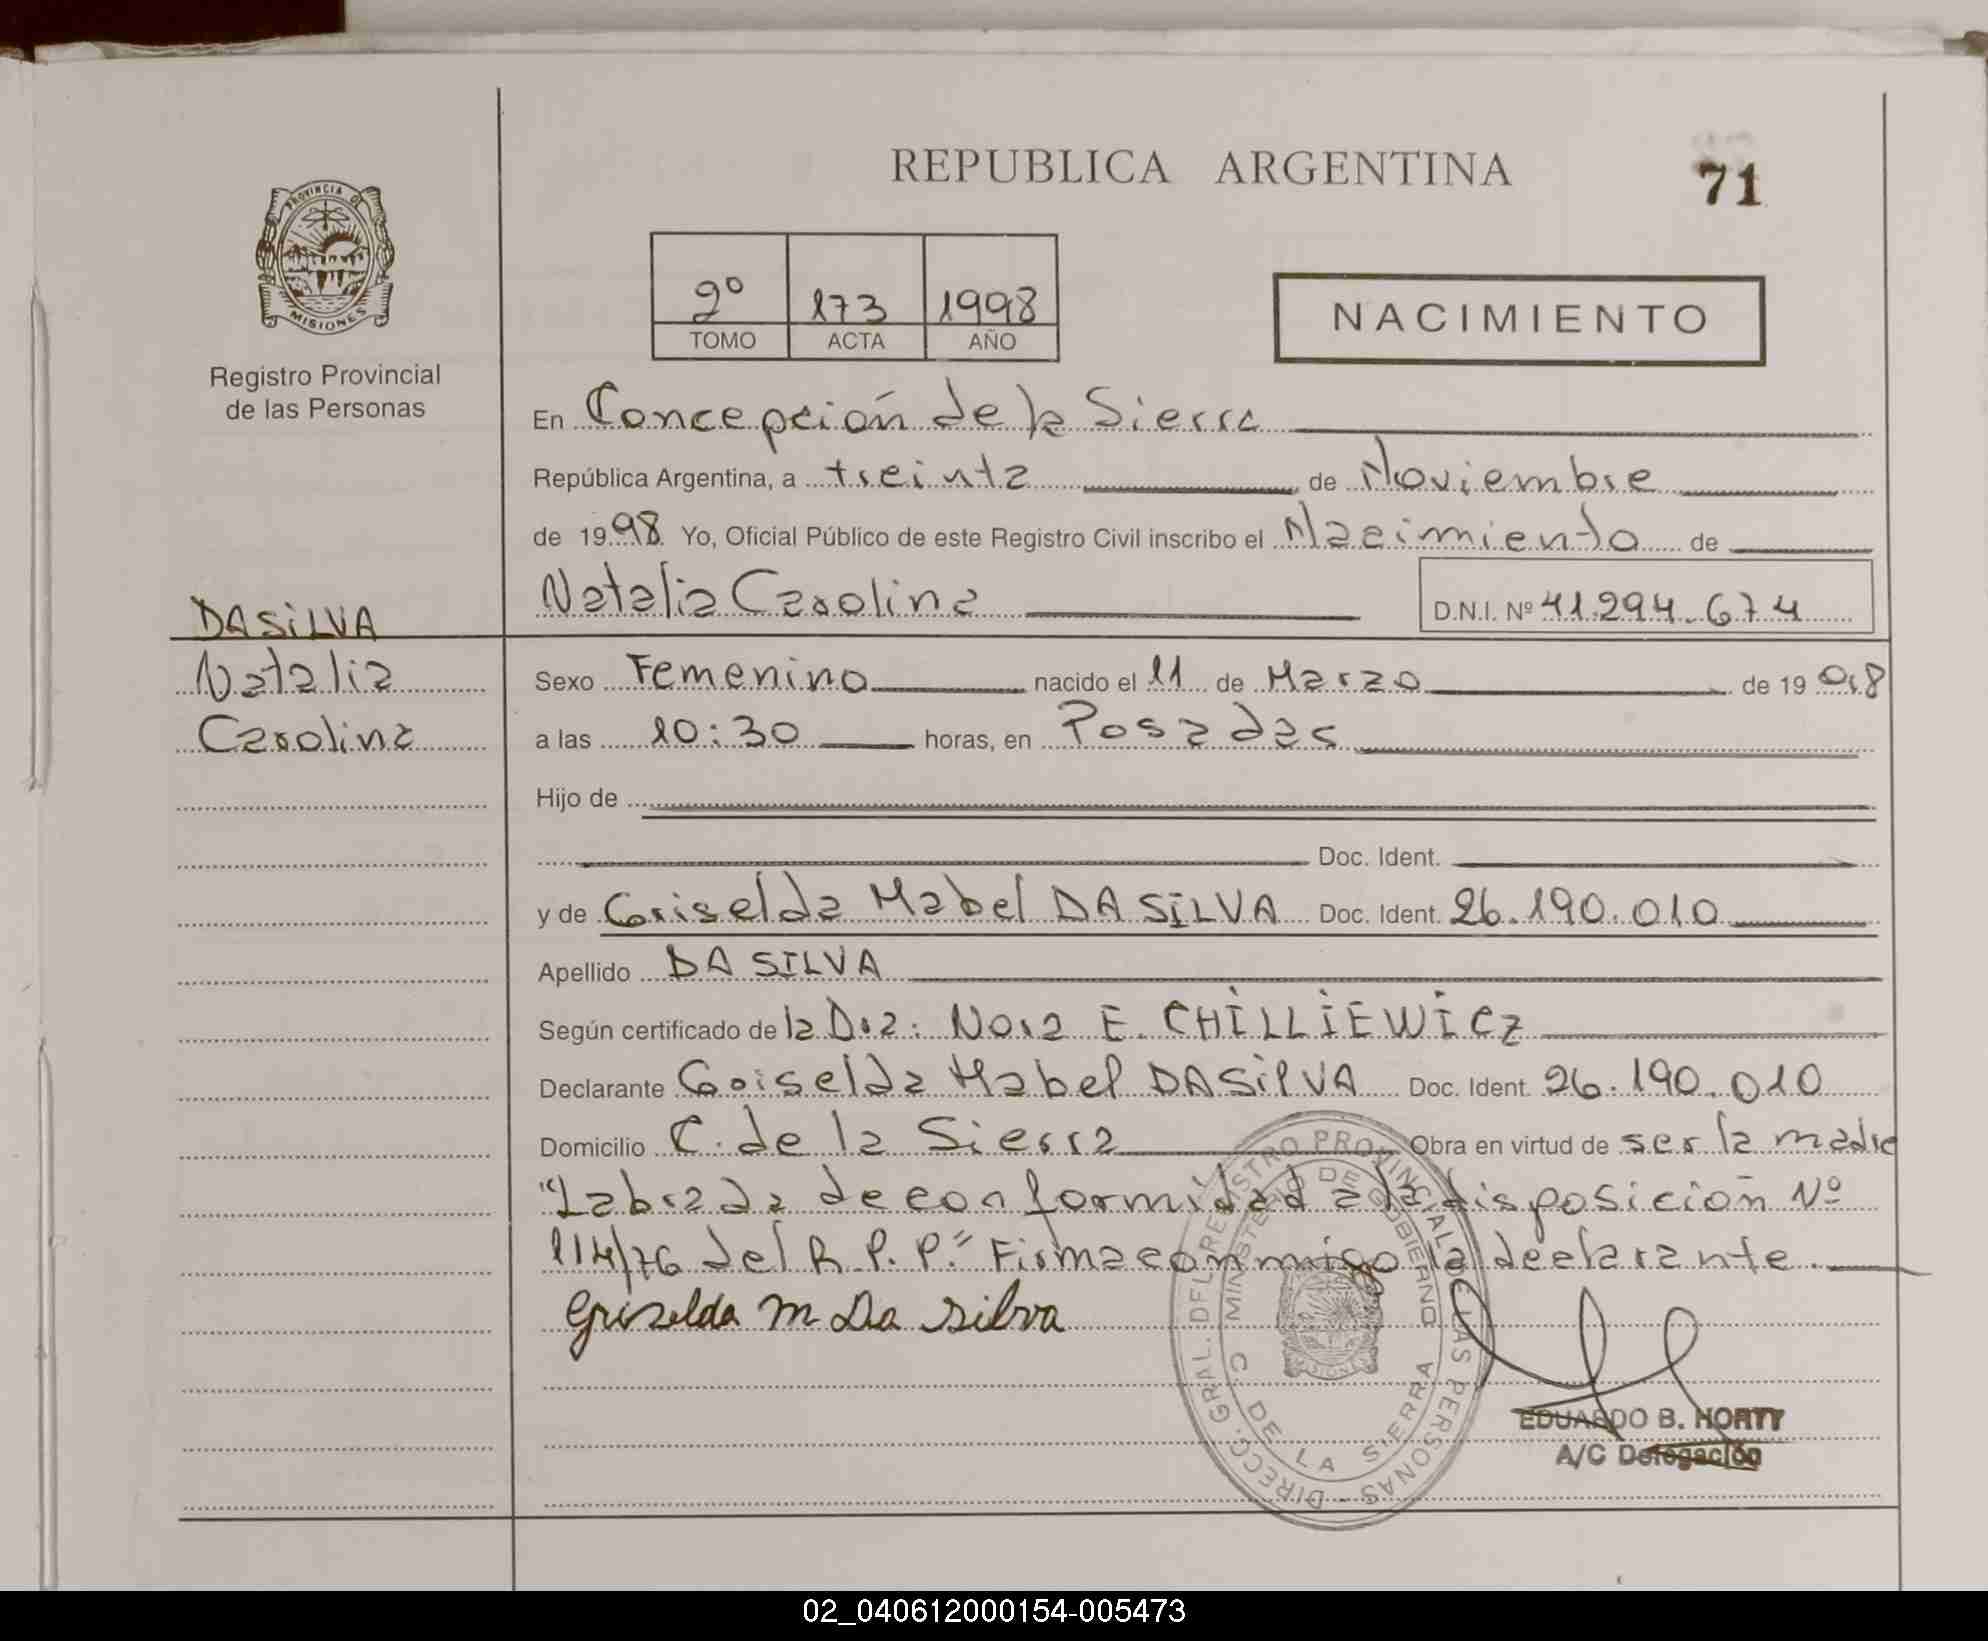 REPUBLICA ARGENTINA
71
PROVINCIA DE
MISIONES
Registro Provincial
de las Personas
2º 173 1998
TOMO ACTA AÑO
NACIMIENTO
En Concepción de la Sierra
República Argentina, a treinta de Noviembre
de 1998 Yo, Oficial Público de este Registro Civil inscribo el Nacimiento de
Natalia Carolina D.N.I. Nº 41.294.674
DA SiLVA
Natalia
Carolina
Sexo Femenino nacido el 11 de Marzo de 19 98
a las 10:30 horas, en Posadas
Hijo de
Doc. Ident.
y de Griselda Mabel DA SiLVA Doc. Ident. 26.190.010
Apellido DA SILVA
Según certificado de la Dra: Nora E. CHiLLiEWiCZ
Declarante Griselda Mabel DA SiLVA Doc. Ident. 26.190.010
Domicilio C. de la Sierra Obra en virtud de ser la madre
"Labrada de conformidad a la disposición Nº
114/76 del R.P.P." Firma conmigo la declarante.
Griselda M Da Silva
DIRECC. GRAL. DEL REGISTRO PROVINCIAL DE LAS PERSONAS -
MINISTERIO DE GOBIERNO
C. DE LA SIERRA
EDUARDO B. HORTT
A/C Delegación
02_040612000154-005473